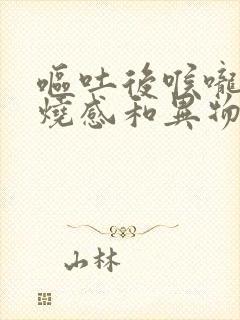 嘔吐後喉嚨
燒感和異物
山林